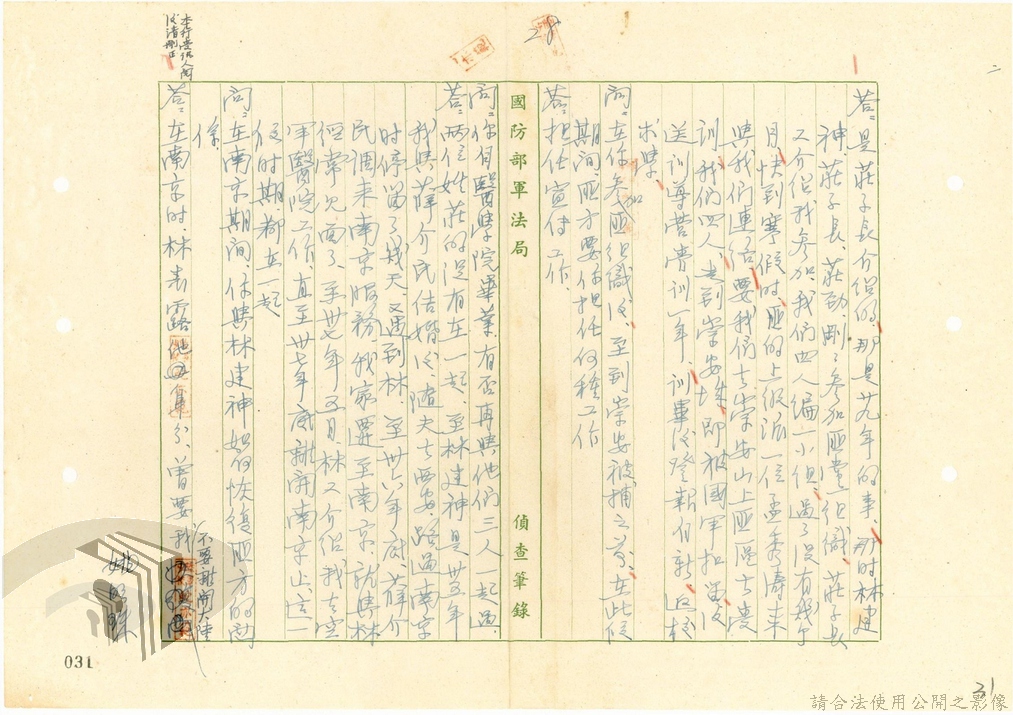 二
答：是莊子長介紹的，那是廿九年的事，那時林建
神、莊子長、莊勁、剛了參加匪黨組織、莊子長
又介紹我參加，我們四人編一小組，過了沒有幾个
月，快到寒假時，匪的上級派一位孟秀濤來
與我們連絡要我們去崇安山上匪區去受
訓，我們四人走到崇安城，即被國軍扣留後
送訓導營管訓一年，訓畢後登報自新，返校
求學。
問：在你參加匪組織後，至到崇安被捕之前，在此候
期間，匪方要你担任何種工作
答：担任宣传工作。
國防部軍法局 偵查筆錄
問：你自醫學院畢業，有否再與他們三人一起過。
答：兩位姓莊的沒有在一起，至林建神是卅五年
我與薛介民結婚後，隨夫去西安，路過南京
時停留了幾天，又遇到林，至卅六年底，薛介
民調來南京服務，我家遷至南京，就與林
經常見面了，至卅七年五月，林又介紹我去空
軍醫院工作，直至卅七年底離開南京止，這一
段时期都在一起
問：在南京期間，你與林建神如何恢復匪方的関
係
答：在南京时，林表露他的身分，曾要我
不要離開大陸
本行受訊人閱
後清刪正
28
031
21
請合法使用公開之影像